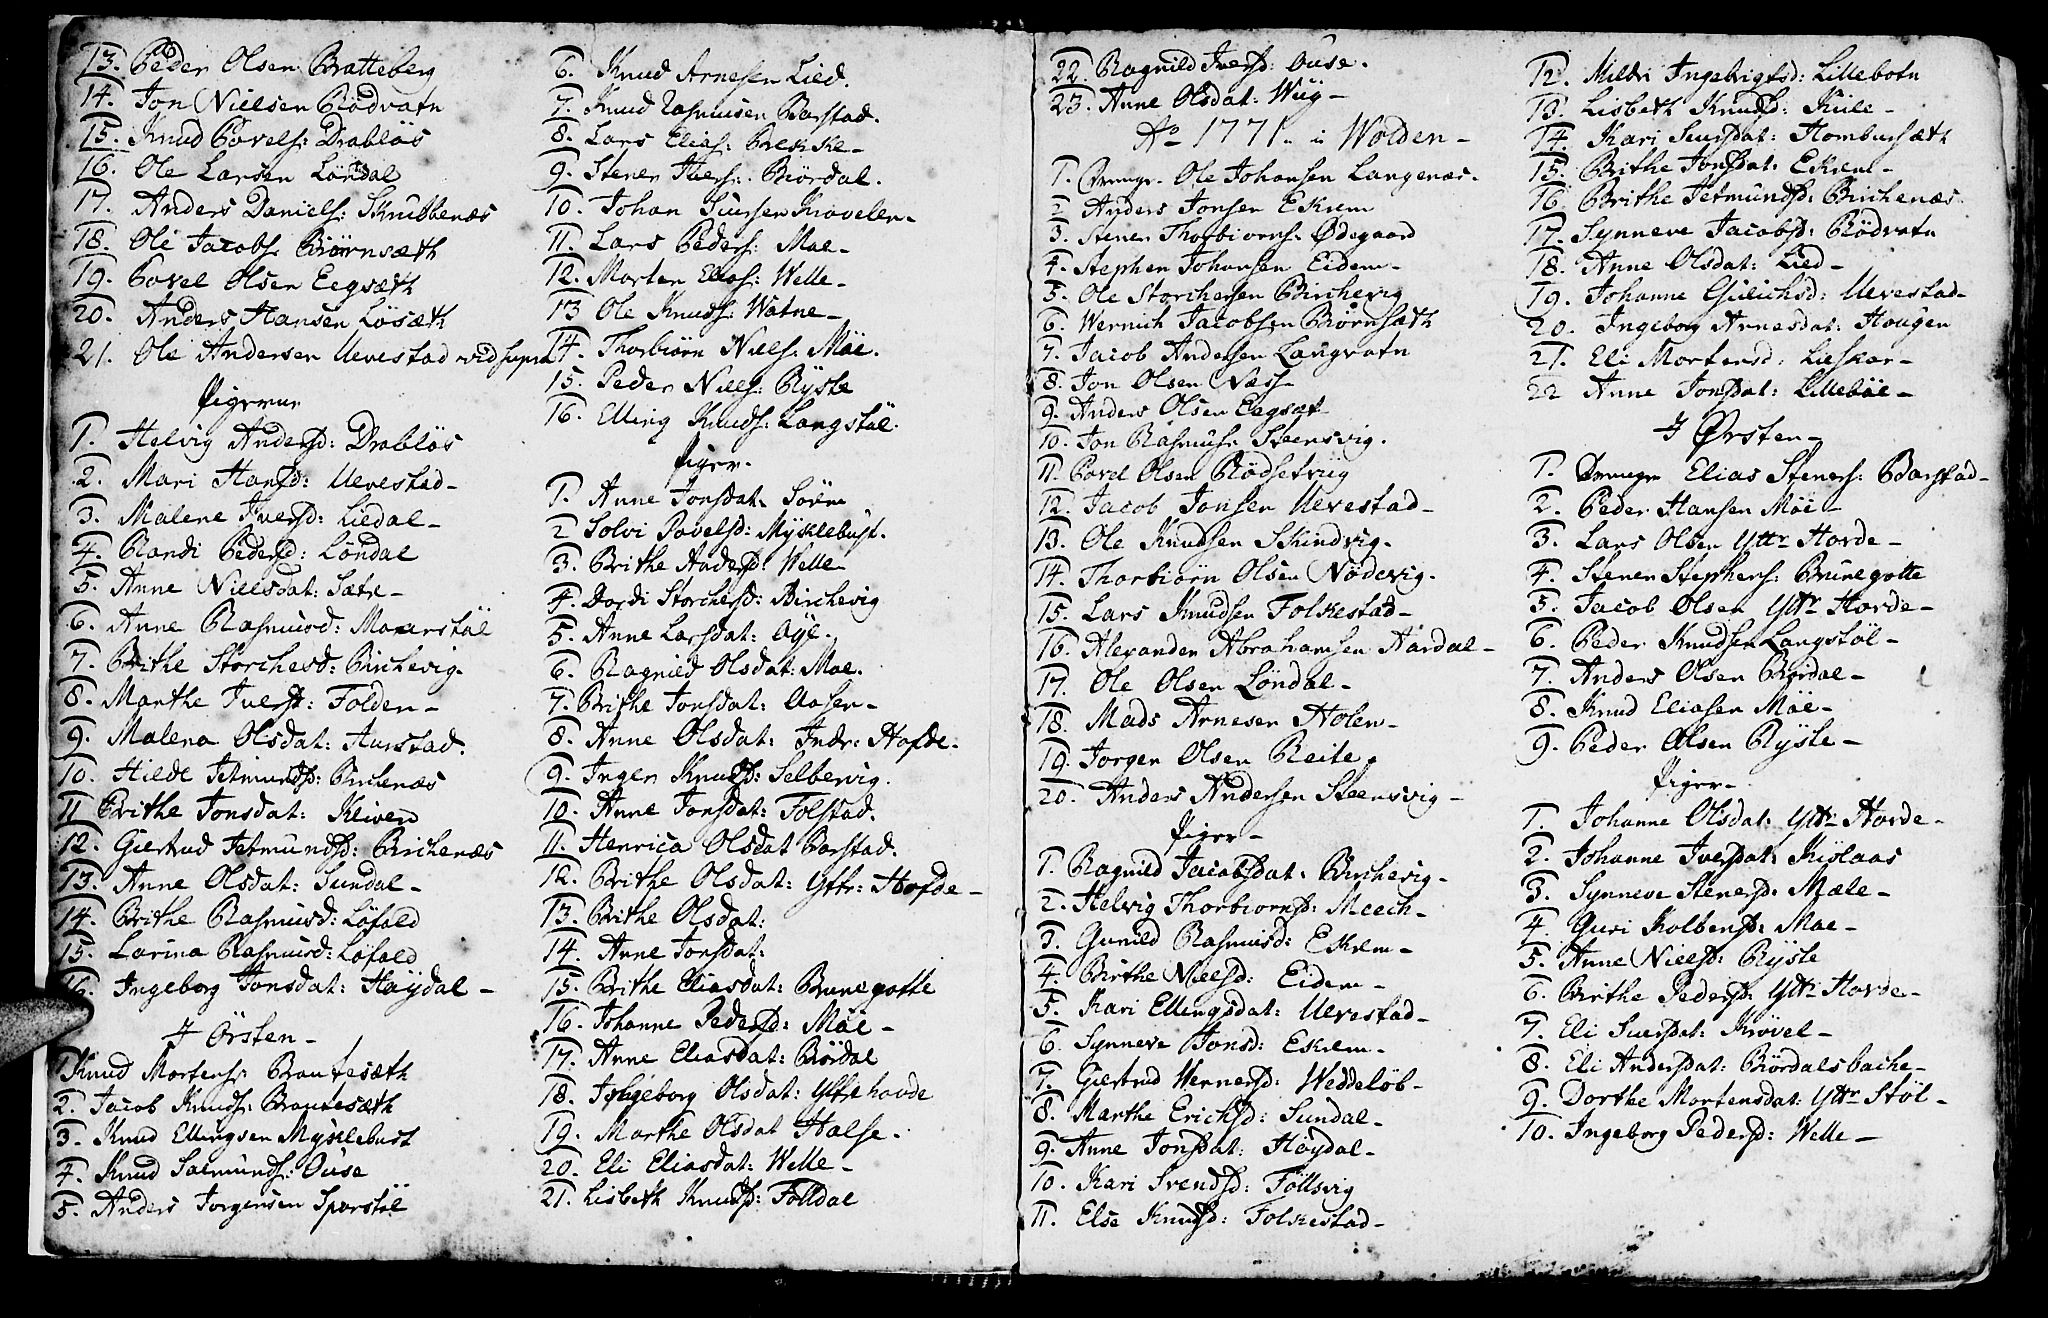 13. Peder Olsen Bratteberg
14. Jon Nielsen Rödvatn
15. Knud Povels: Drabløs
16. Ole Larsen Löndal
17. Anders Daniels: Skrubbenæs
18. Ole Jacobs: Biörnsæth
19. Povel Olsen Eegsæth
20. Anders Hansen Lösæth
21. Ole Andersen Uevestad vid supra
Pigerne
1. Helvig Andersd: Drabløs
2. Mari Hansd: Uevestad
3. Malene Iversd: Liedal
4. Randi Pedersd: Löndal
5. Anne Nielsdat: Sætre
6. Anne Rasmusd: Maurstöl
7. Brithe Storchesd: Birchevig
8. Marthe Iversd: Folden
9. Malena Olsdat: Aurstad
10. Hilde Jetmundsd: Birchenæs
11 Brithe Jonsdat: Kliven
12. Giertrud Jetmundsd: Birchenæs
13. Anne Olsdat: Sundal
14. Brithe Rasmusd: Löfald
15. Larina Rasmusd: Löfald
16. Ingeborg Jonsdat: Höydal
I Örsten
1 Knud Mortens: Brautesæth
2. Jacob Knuds: Brautesæth
3. Knud Ellingsen Myklebust
4. Knud Salmunds: Ouse
5. Anders Jorgensen Sporstöl
6. Knud Arnesen Lied.
7. Knud Rasmusen Barstad.
8. Lars Elias: Brekke
9. Stener Ivers: Biördal.
10. Johan Siursen Krovelen
11. Lars Peders: Moe
12. Morten Elias: Welle
13 Ole Knuds: Watne
14. Thorbiörn Niels: Möe.
15. Peder Niels: Ryste
16. Elling Knuds: Langstöl.
Piger.
1. Anne Jonsdat:
2 Solvi Povelsd: Myklebust.
3. Brithe Andersd: Welle
4. Dordi Storchersd: Birchevig
5. Anne Larsdat: Aye.
6. Ragnild Olsdat: Moe.
7. Brithe Jonsdat: Aasen
8. Anne Olsdat: Indr: Hofde.
9. Inger Knudsd: Selbervig.
10. Anne Jonsdat: Folstad.
11. Henrica Olsdat Barstad.
12. Brithe Olsdat: Yttr: Hofde
13. Brithe Olsdat:
14. Anne Jonsdat:
15. Brithe Eliasdat: Brunegotte
16. Johanne Pedersd: Möe
17. Anne Eliasdat: Biördal
18. Ingeborg Olsdat: Yttre hovde
19. Marthe Olsdat Halse.
20. Eli Eliasdat: Welle
21. Lisbeth Knudsd: Folldal
22. Ragnild Iversd: Ouse.
23. Anne Olsdat: Wiig
Ao 1771. i Wolden
1. Drenge. Ole Johansen Langenæs.
2 Anders Jonsen Ekrem
3. Stener Thorbiorns: Ødegaard
4. Stephen Johansen Eidem
5. Ole Storchersen Birchevig
6. Wernich Jacobsen Biörnsæth
7. Jacob Andersen Laugvatn
8. Jon Olsen Næss
9. Anders Olsen Eegsæt
10. Jon Rasmus: Steensvig.
11. Povel Olsen Rödsetviig
12. Jacob Jonsen Uevestad
13. Ole Knudsen Skindvig.
14. Thorbiörn Olsen Nödevig.
15. Lars Knudsen Folkestad
16. Alexander Abrahamsen Aardal
17. Ole Olsen Löndal
18. Mads Arnesen Holen
19. Jorgen Olsen Reite.
20. Anders Andersen Steensvig
Piger
1. Ragnild Jacobsdat: Birchevig
2. Helvig Thorbiornsd: Meech
3. Gunild Rasmusd: Ekrem
4. Birthe Nielsd: Eidem
5. Kari Ellingsdat: Uevestad
6. Synneve Jonsd: Ekrem
7. Giertrud Wernersd: Weddelöb
8. Marthe Erichsd: Sundal
9. Anne Jonsdat: Höydal
10. Kari Svendsd: Föllsvig
11. Else Knudsd: Folkestad
12. Mildri Ingebrigtsd: Lillebotn
13. Lisbeth Knudsd: Kiile
14. Kari Siursdat: Homborsæth
15. Brithe Jonsdat: Ekrem
16. Brithe Jetmundsd: Birchenæs
17. Synneve Jacobsd: Rödvatn
18. Anne Olsdat: Lied
19. Johanne Gulichsd: Uevestad
20. Ingeborg Arnesdat: Hougen
21. Eli Mortensd: Lieskar
22 Anne Jonsdat: Lillebøe
I Ørsten
1. Drenge Elias Steners: Barstad
2. Peder Hansen Möe
3. Lars Olsen Yttr Hovde
4. Stener Stephens: Brunegotte
5. Jacob Olsen Yttr Hovde
6. Peder Knudsen Langstöl
7. Anders Olsen Biördal
8. Knud Eliasen Möe
9. Peder Olsen Ryste
Piger
1. Johanne Olsdat: Yttr Hovde
2. Johanne Iversdat: Kiölaas
3. Synneve Stenersd: Mæle
4. Guri Kolbensd: Moe
5. Anne Nielsd: Ryste
6. Birthe Pedersd: Yttr Hovde
7. Eli Siursdat: Krövel
8. Eli Andersdat: Biördalsbache
9. Dorthe Mortensdat: Yttr Stöl
10. Ingeborg Pedersd: Welle